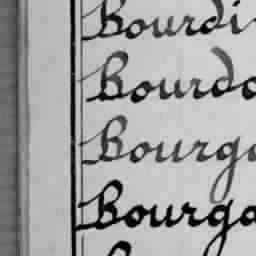 Bourdi
Bourdo
Bourga
Bourga